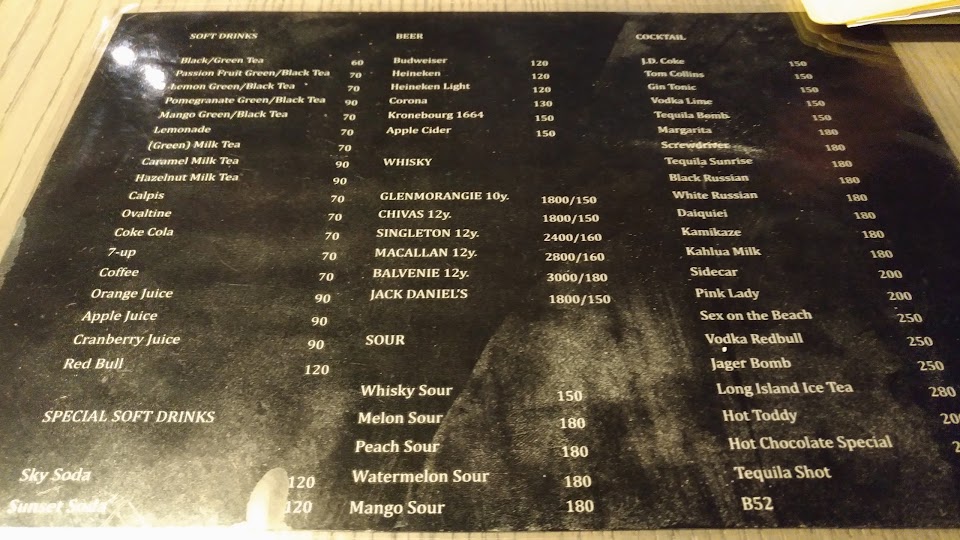 SOFT DRINKS
Black/Green Tea 60
Passion Fruit Green/Black Tea 70
Lemon Green/Black Tea 70
Pomegranate Green/Black Tea 90
Mango Green/Black Tea 70
Lemonade 70
(Green) Milk Tea 70
Caramel Milk Tea 90
Hazelnut Milk Tea 90
Calpis 70
Ovaltine 70
Coke Cola 70
7-up 70
Coffee 70
Orange Juice 90
Apple Juice 90
Cranberry Juice 90
Red Bull 120
SPECIAL SOFT DRINKS
Sky Soda 120
Sunset Soda 120
BEER
Budweiser 120
Heineken 120
Heineken Light 120
Corona 130
Kronebourg 1664 150
Apple Cider 150
WHISKY
GLENMORANGIE 10y. 1800/150
CHIVAS 12y. 1800/150
SINGLETON 12y. 2400/160
MACALLAN 12y. 2800/160
BALVENIE 12y. 3000/180
JACK DANIEL'S 1800/150
SOUR
Whisky Sour 150
Melon Sour 180
Peach Sour 180
Watermelon Sour 180
Mango Sour 180
COCKTAIL
J.D. Coke 150
Tom Collins 150
Gin Tonic 150
Vodka Lime 150
Tequila Bomb 150
Margarita 180
Screwdriver 180
Tequila Sunrise 180
Black Russian 180
White Russian 180
Daiquiei 180
Kamikaze 180
Kahlua Milk 180
Sidecar 200
Pink Lady 200
Sex on the Beach 250
Vodka Redbull 250
Jager Bomb 250
Long Island Ice Tea 280
Hot Toddy
Hot Chocolate Special
Tequila Shot
B52